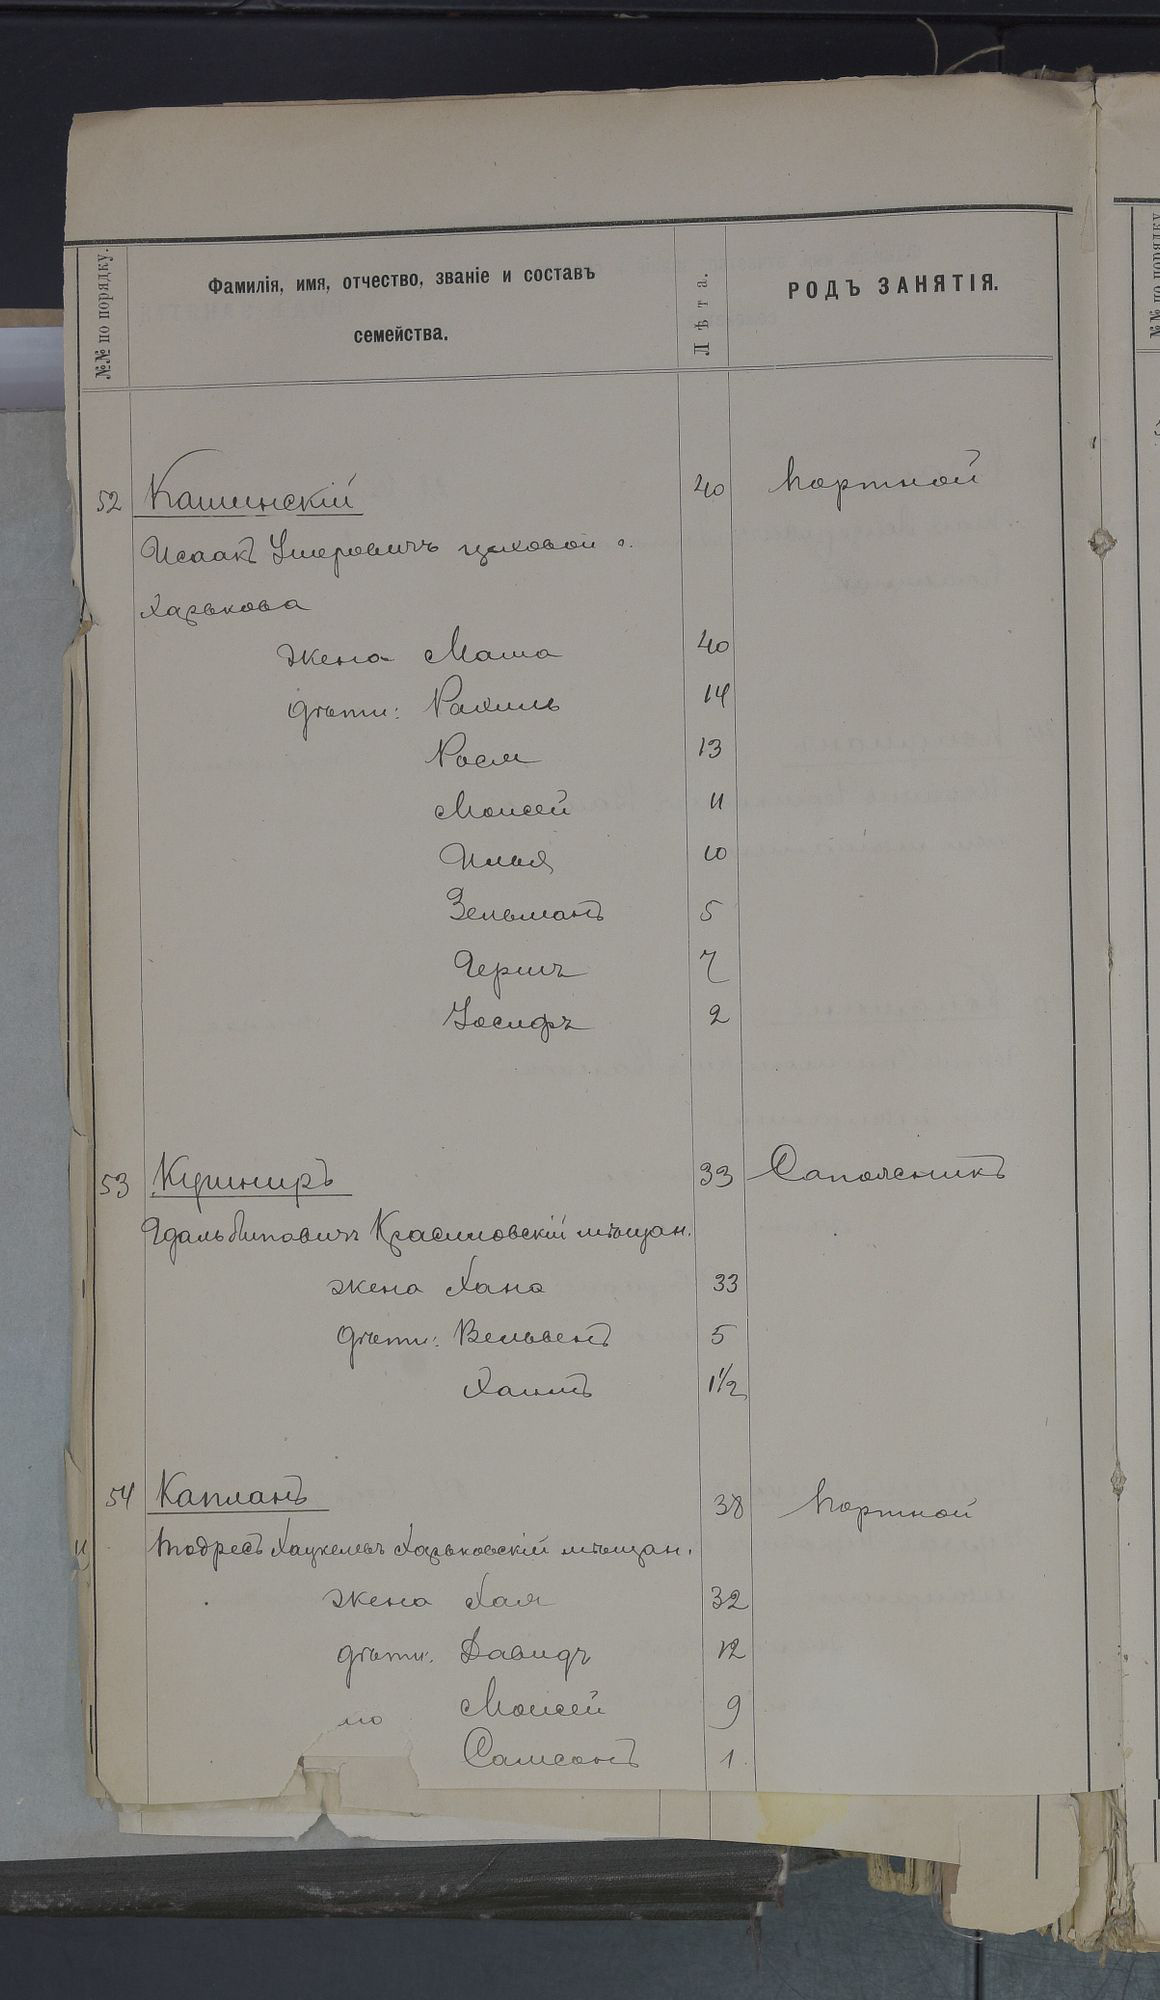 №№ по порядку.
Фамилія, имя, отчество, званіе и составъ
семейства.
Лѣта.
РОДЪ ЗАНЯТІЯ.
№№ по порядку
52 Кашинскій 40 Портной
Исаакъ цеховой г.
Харькова
жена Маша 40
дѣти: Рахиль 14
Рося 13
Моисей 11
Илья 10
Зельманъ 5
Гершъ 7
Іосифъ 2
53 Кушниръ 33 Сапожникъ
мѣщан.
жена Хана 33
дѣти: Вельвелъ 5
Хаимъ 1½
54 Капланъ 38 Портной
Тодресъ Харьковскій мѣщан.
жена Хая 32
дѣти: Давидъ 12
Моисей 9
Самсонъ 1